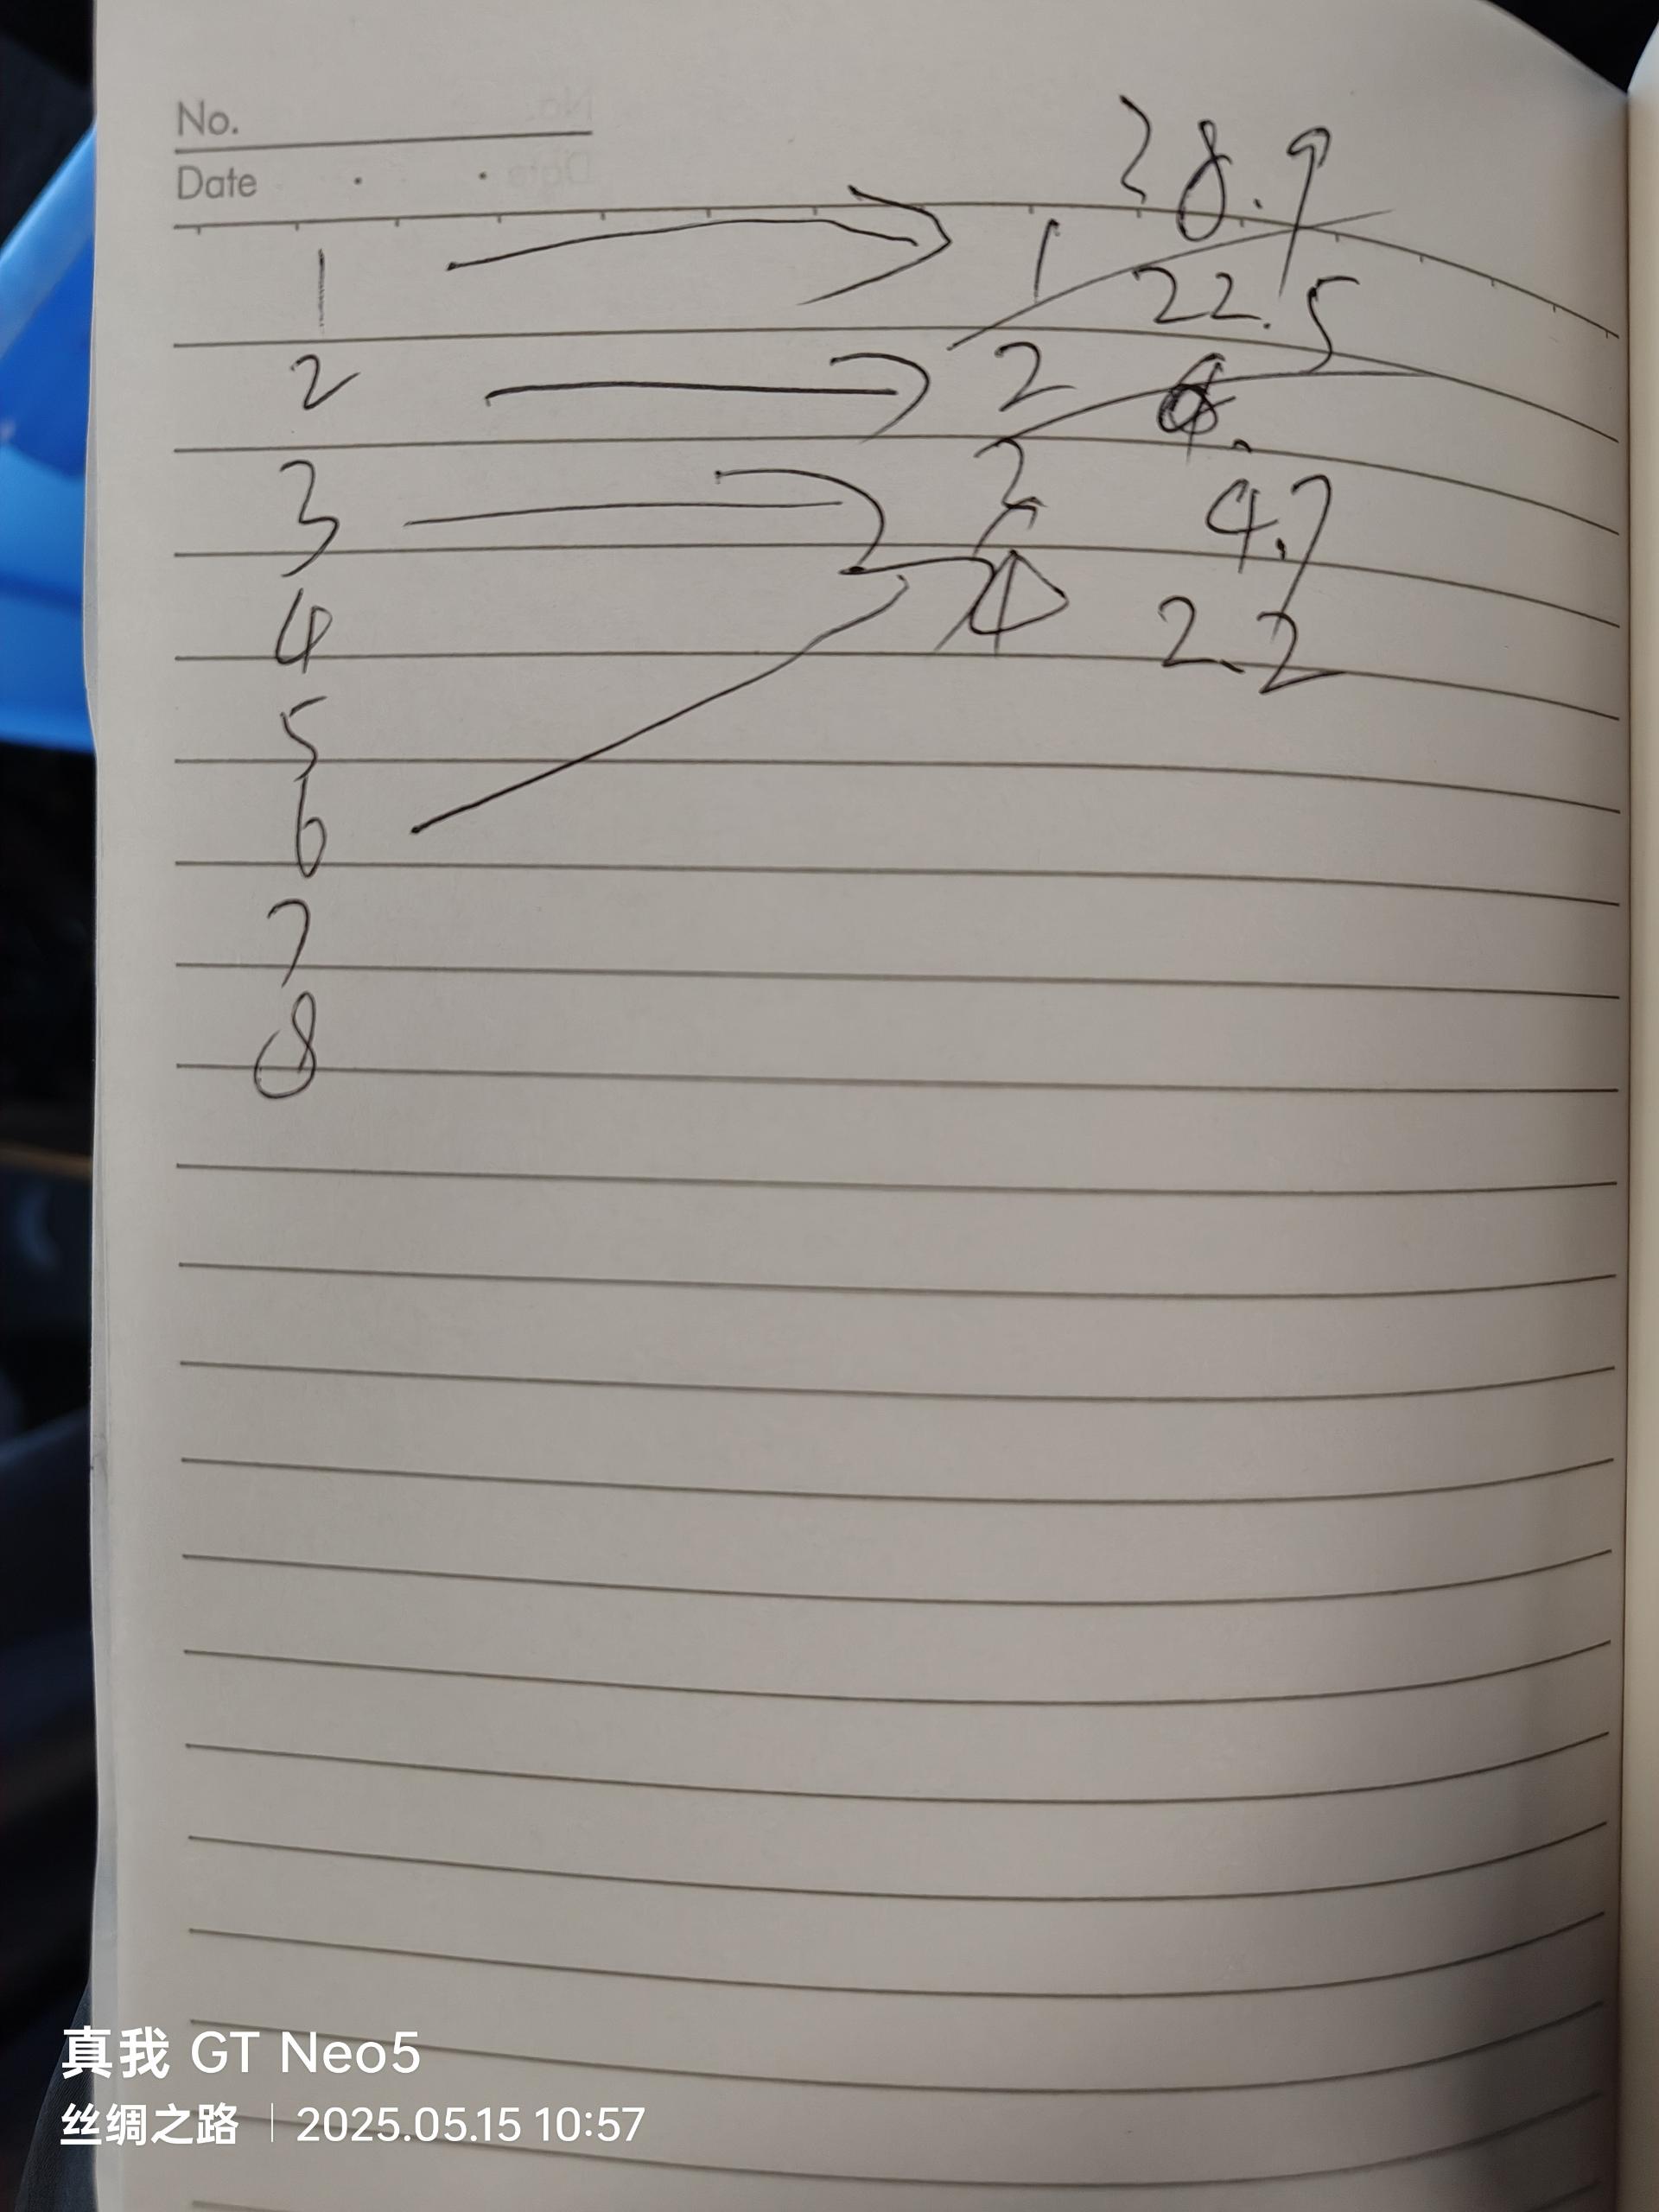 No.
Date
38.9
1 → 1 22.5
2 → 2
3 → 3 4.7
4 4 2.2
5
6
7
8
真我 GT Neo5
丝绸之路 | 2025.05.15 10:57